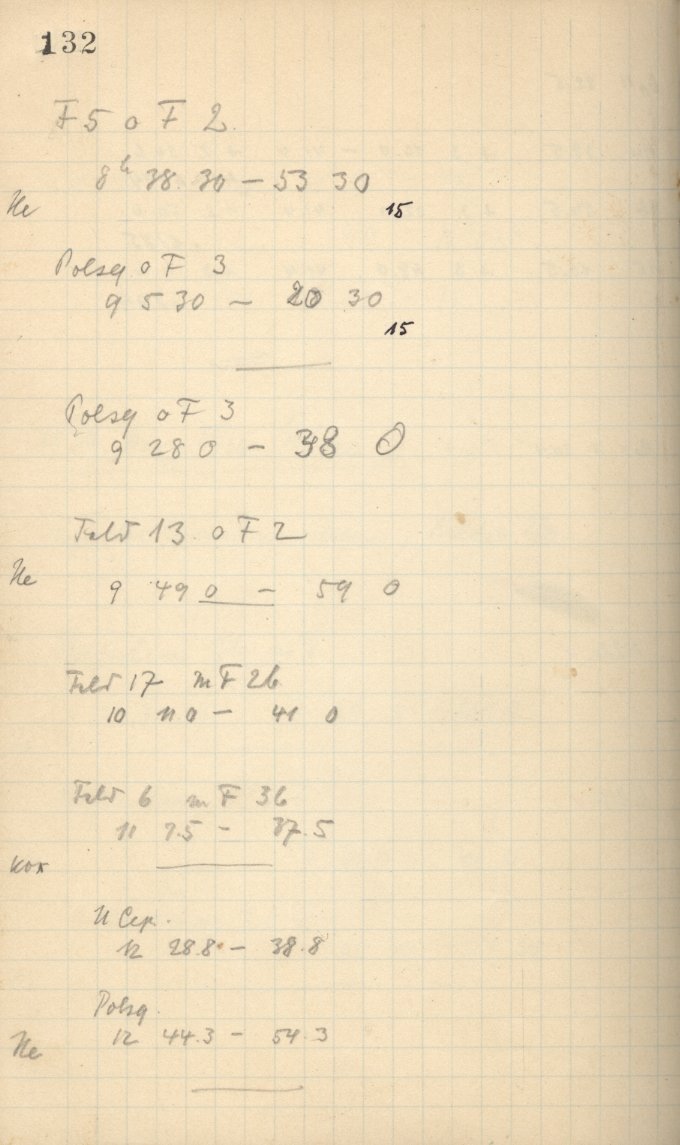 132
F 5 o F 2.
8h 38. 30 – 53 30
He
15
Polsq o F 3
9 5 30 – 20 30
15
Polsq o F 3
9 28 0 – 38 0
Feld 13 o F 2
He
9 49 0 – 59 0
Feld 17 m F 26
10 11 0 – 41 0
Feld 6 m F 36
11 7.5 – 37.5
Kox
U Cep.
12 28.8 – 38.8
Polsq
12 44.3 – 54.3
He